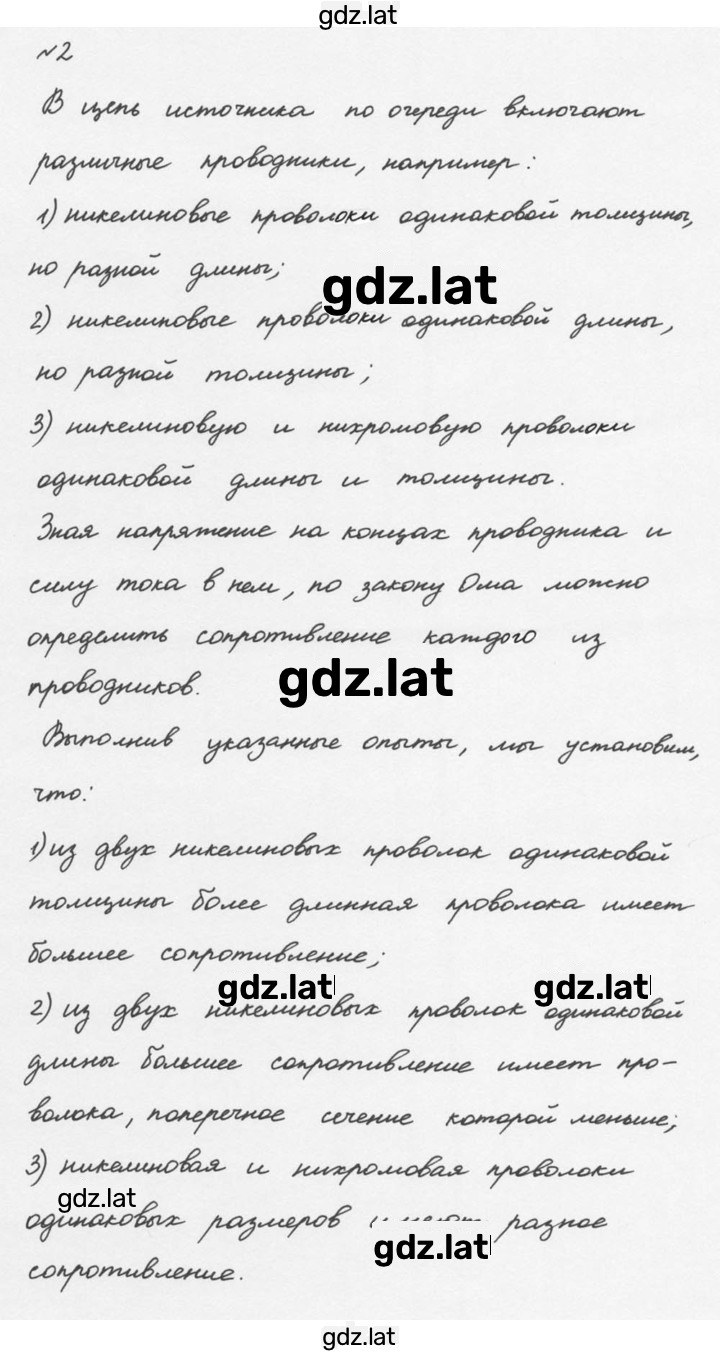 gdz.lat
№2
В цепь источника по очереди включают
различные проводники, например:
1) никелиновые проволоки одинаковой толщины,
но разной длины;
gdz.lat
2) никелиновые проволоки одинаковой длины,
но разной толщины;
3) никелиновую и нихромовую проволоки
одинаковой длины и толщины.
Зная напряжение на концах проводника и
силу тока в нем, по закону Ома можно
определить сопротивление каждого из
проводников.
gdz.lat
Выполнив указанные опыты, мы установим,
что:
1) из двух никелиновых проволок одинаковой
толщины более длинная проволока имеет
большее сопротивление;
gdz.lat gdz.lat
2) из двух никелиновых проволок одинаковой
длины большее сопротивление имеет про-
волока, поперечное сечение которой меньше;
3) никелиновая и нихромовая проволоки
gdz.lat
одинаковых размеров имеют разное
gdz.lat
сопротивление.
gdz.lat